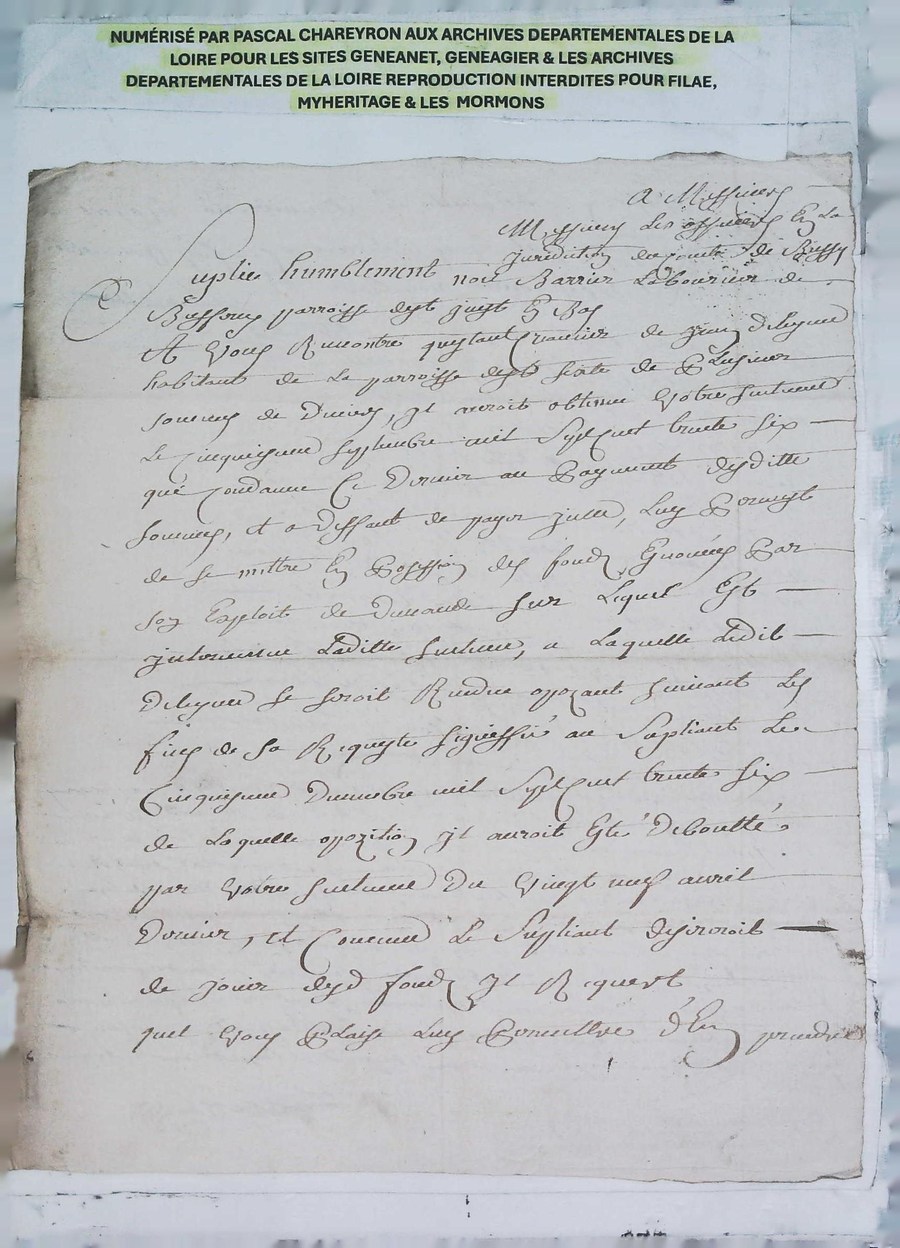 NUMÉRISÉ PAR PASCAL CHAREYRON AUX ARCHIVES DEPARTEMENTALES DE LA
LOIRE POUR LES SITES GENEANET, GENEAGIER & LES ARCHIVES
DEPARTEMENTALES DE LA LOIRE REPRODUCTION INTERDITES POUR FILAE,
MYHERITAGE & LES MORMONS
A Messieurs
Messieurs Les officiers En La
Juridiction de de Bussy
Suplie humblement Barrier Laboureur de
parroisse dest just En Bas
A Vous Remontre questant Creancier de Jean
habitant de La parroisse dest sixte de Plusieurs
sommes de Deniers, Jl auroit obtenue Votre sentence
Le Cinquiesme septembre mil Sept Cent trente six
que Condanne Ce Dernier au Payement desditte
sommes, et a deffaut de payer Jcelle, Luy Permest
de se mettre En Possession des fondz Enoncés Par
son Exploit de Demande sur Lequel Est
Jntervenue Laditte sentence, a Laquelle Ledit
se seroit Rendue opozant suivant Les
fins de sa Requeste signiffié au Supliant Le
Cinquiesme Decembre mil Sept Cent trente six
de Laquelle opozition Jl auroit Esté Deboutté
par Votre sentence Du Vingt neuf avril
Dernier, et Comme Le Supliant desireroit
de jouir desd fondz Jl Requert
quil Vous Plaise Luy Permettre d'En prendre